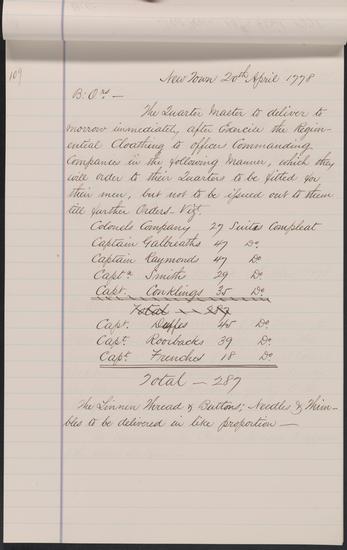 109
New Town 20th April 1778
B. Ors —
The Quarter Master to deliver to
morrow immediately, after Exercise the Regim-
ential Cloathing to officer Commanding
Companies in the following Manner, which they
will order to their Quarters to be fitted for
their men, but not to be issued out to them
till further Orders — Vizt.
Colonels Company 27 Suits Compleat
Captain Galbreaths 47 Do.
Captain Raymonds 47 Do.
Capta. Smiths 29 Do.
Capt. Conklings 35 Do.
Total — 287
Capt. Deffes 45 Do.
Capt. Roorbacks 39 Do.
Capt. Frenches 18 Do.
Total — 287
The Linnen Thread & Buttons; Needles & Thim-
bles to be delivered in like proportion —